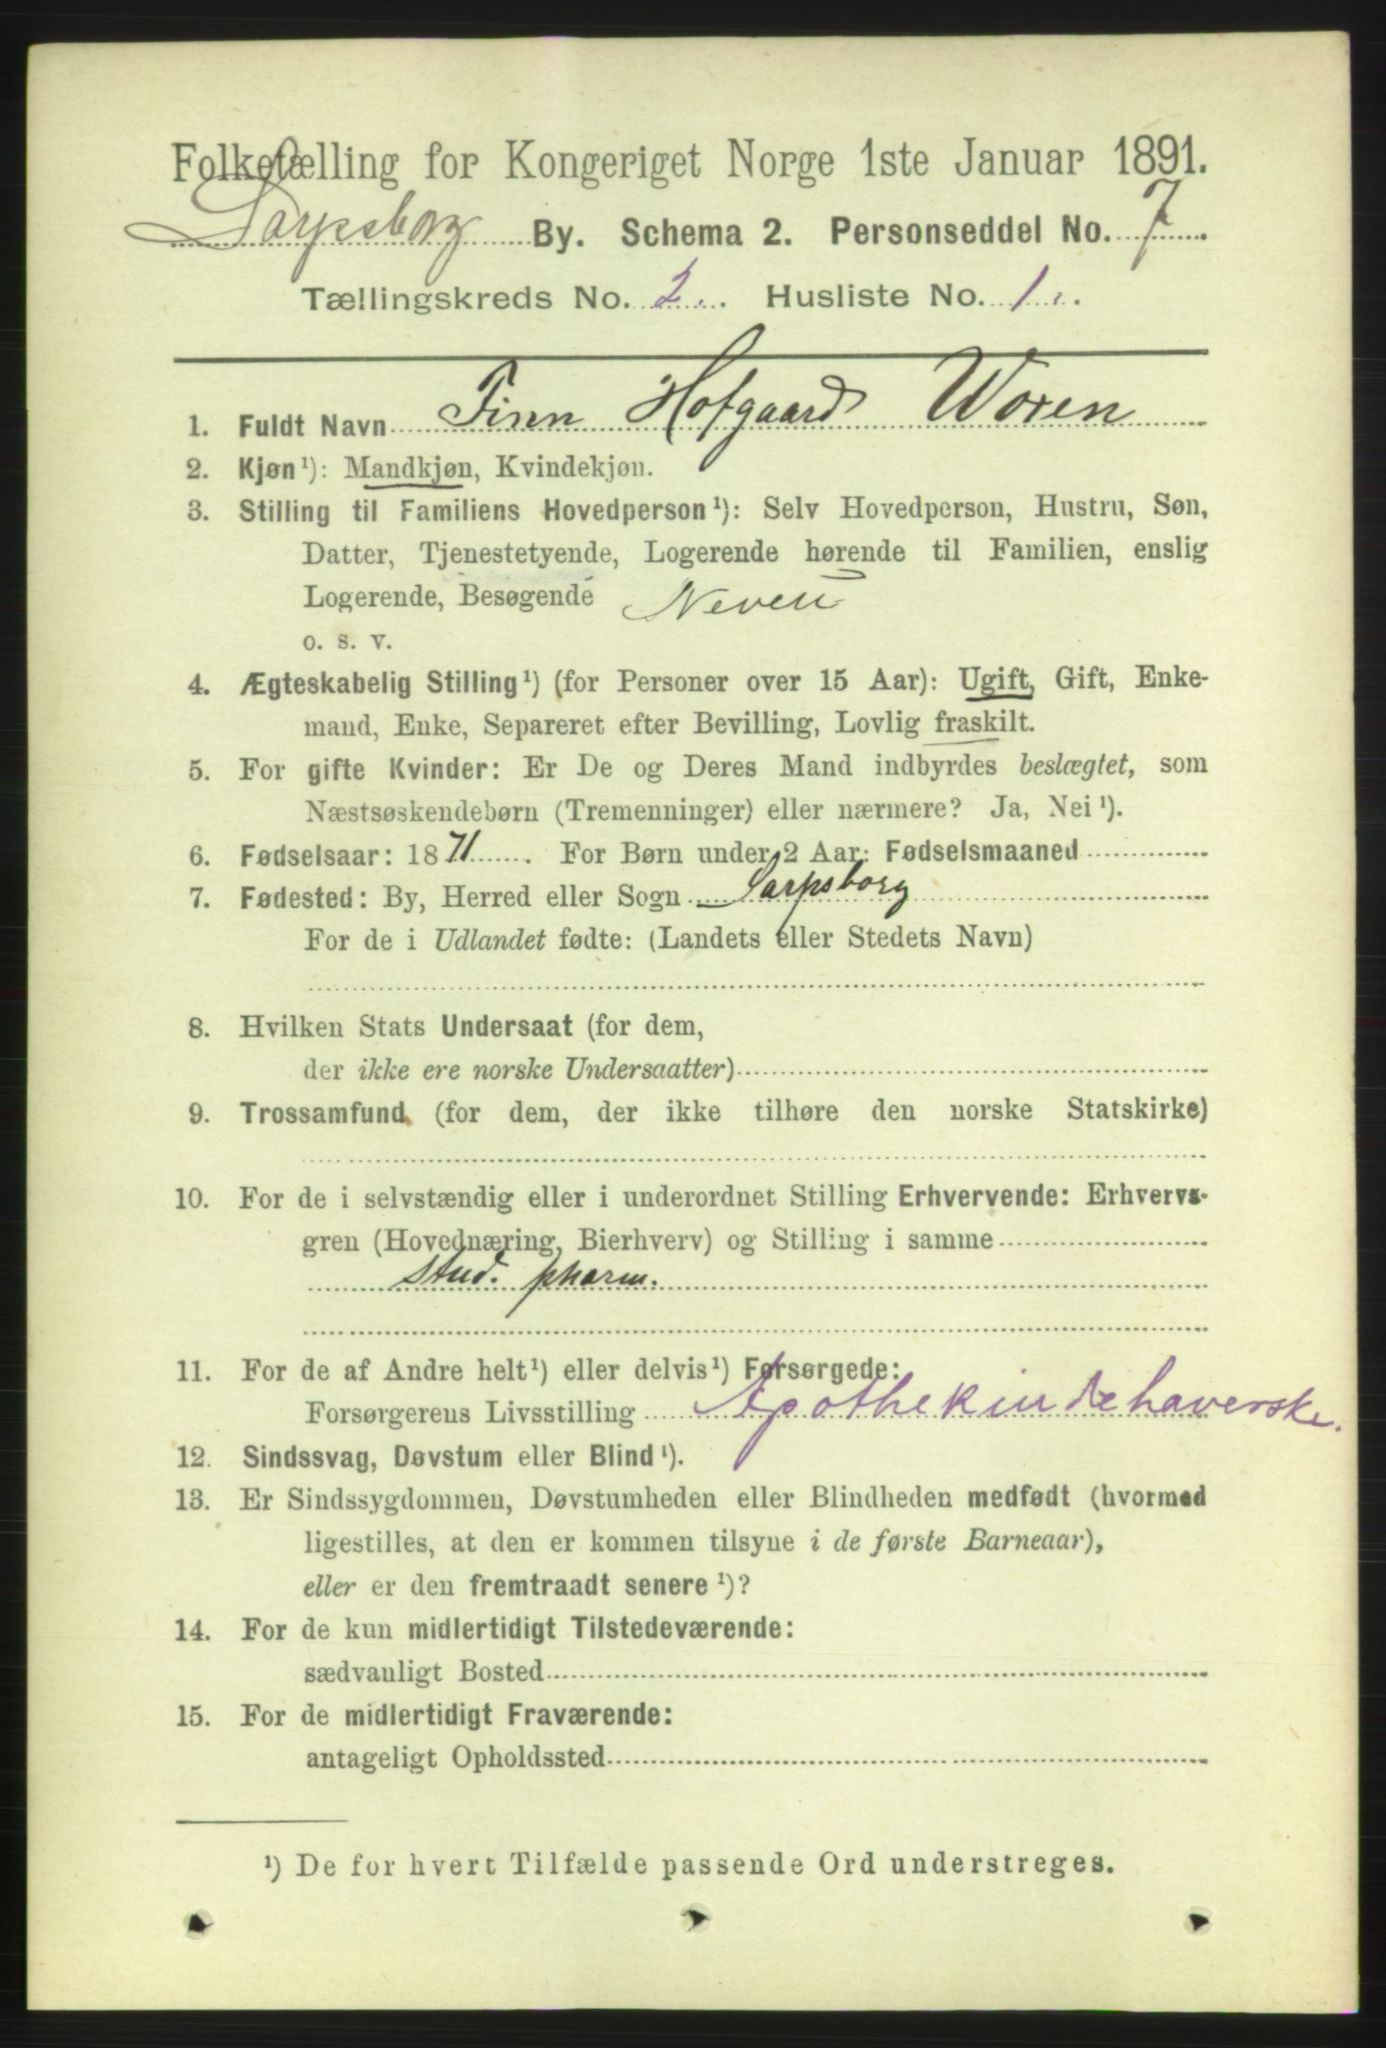 Folketælling for Kongeriget Norge 1ste Januar 1891.
Sarpsborg By. Schema 2. Personseddel No. 7.
Tællingskreds No. 2. Husliste No. 1.
1. Fuldt Navn Finn Hofgaard Woxen
2. Kjøn¹): Mandkjøn, Kvindekjøn.
3. Stilling til Familiens Hovedperson¹): Selv Hovedperson, Hustru, Søn,
Datter, Tjenestetyende, Logerende hørende til Familien, enslig
Logerende, Besøgende Neveu
o. s. v.
4. Ægteskabelig Stilling¹) (for Personer over 15 Aar): Ugift, Gift, Enke-
mand, Enke, Separeret efter Bevilling, Lovlig fraskilt.
5. For gifte Kvinder: Er De og Deres Mand indbyrdes beslægtet, som
Næstsøskendebørn (Tremenninger) eller nærmere? Ja, Nei¹).
6. Fødselsaar: 1871. For Børn under 2 Aar: Fødselsmaaned
7. Fødested: By, Herred eller Sogn Sarpsborg
For de i Udlandet fødte: (Landets eller Stedets Navn)
8. Hvilken Stats Undersaat (for dem,
der ikke ere norske Undersaatter)
9. Trossamfund (for dem, der ikke tilhøre den norske Statskirke)
10. For de i selvstændig eller i underordnet Stilling Erhvervende: Erhvervs-
gren (Hovednæring, Bierhverv) og Stilling i samme
stud. pharm.
11. For de af Andre helt¹) eller delvis¹) Forsørgede:
Forsørgerens Livsstilling Apothekindehaverske.
12. Sindssvag, Døvstum eller Blind¹).
13. Er Sindssygdommen, Døvstumheden eller Blindheden medfødt (hvormed
ligestilles, at den er kommen tilsyne i de første Barneaar),
eller er den fremtraadt senere¹)?
14. For de kun midlertidigt Tilstedeværende:
sædvanligt Bosted
15. For de midlertidigt Fraværende:
antageligt Opholdssted
¹) De for hvert Tilfælde passende Ord understreges.